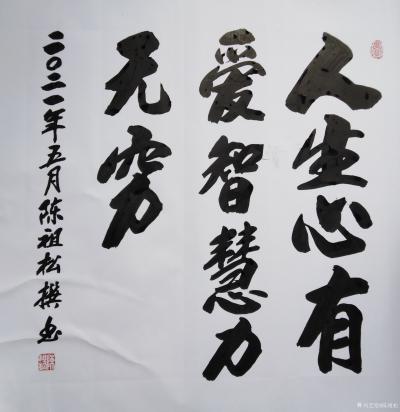 人生心有
爱智慧力
无穷
二〇二一年五月陈祖松撰书